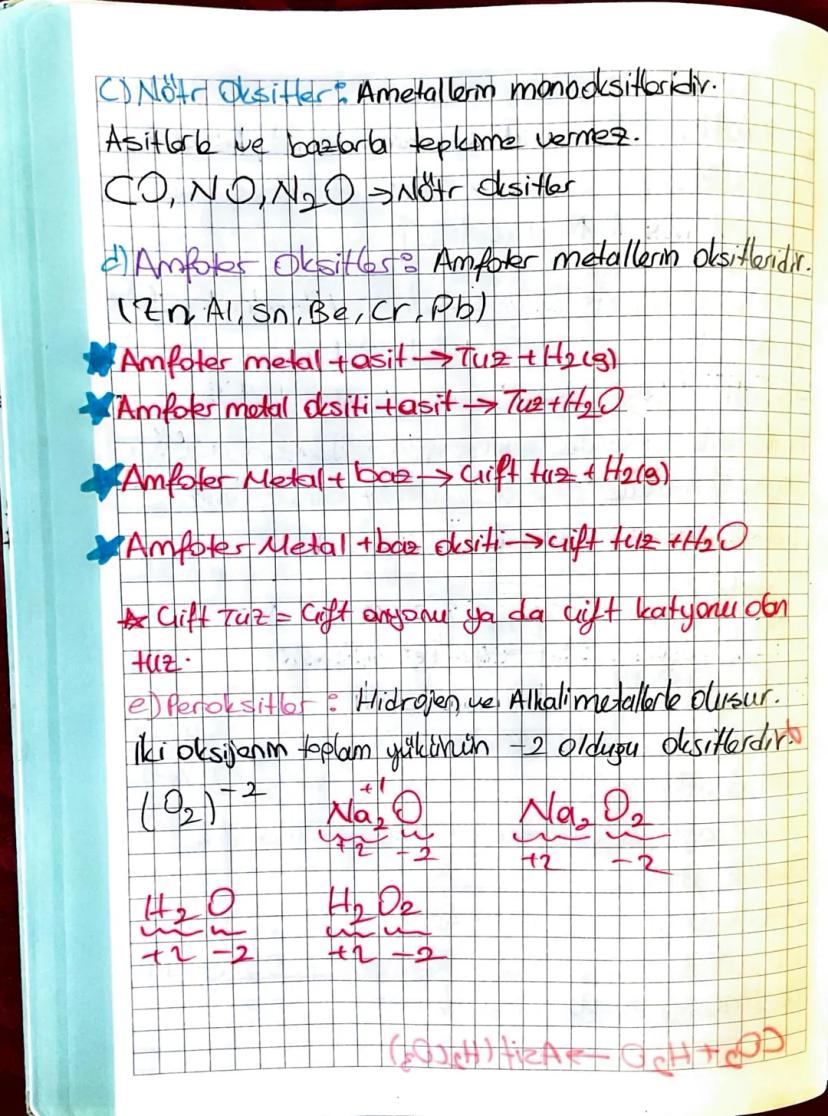 c) Nötr Oksitler: Ametallerin monooksitleridir.
Asitlerle ve bazlarla tepkime vermez.
CO, NO, N₂O → Nötr oksitler
d) Amfoter Oksitler: Amfoter metallerin oksitleridir.
(Zn, Al, Sn, Be, Cr, Pb)
★ Amfoter metal + asit → Tuz + H₂(g)
★ Amfoter metal oksiti + asit → Tuz + H₂O
★ Amfoter Metal + baz → Çift tuz + H₂(g)
★ Amfoter Metal + baz oksiti → çift tuz + H₂O
☆ Çift Tuz = Çift anyonu ya da çift katyonu olan
tuz.
e) Peroksitler : Hidrojen ve Alkali metallerle oluşur.
İki oksijenin toplam yükünün -2 olduğu oksitlerdir.
+1
(O₂)⁻² Na₂O Na₂O₂
+2 -2 +2 -2
H₂O H₂O₂
+2 -2 +2 -2
CO₂ + H₂O → Asit (H₂CO₃)